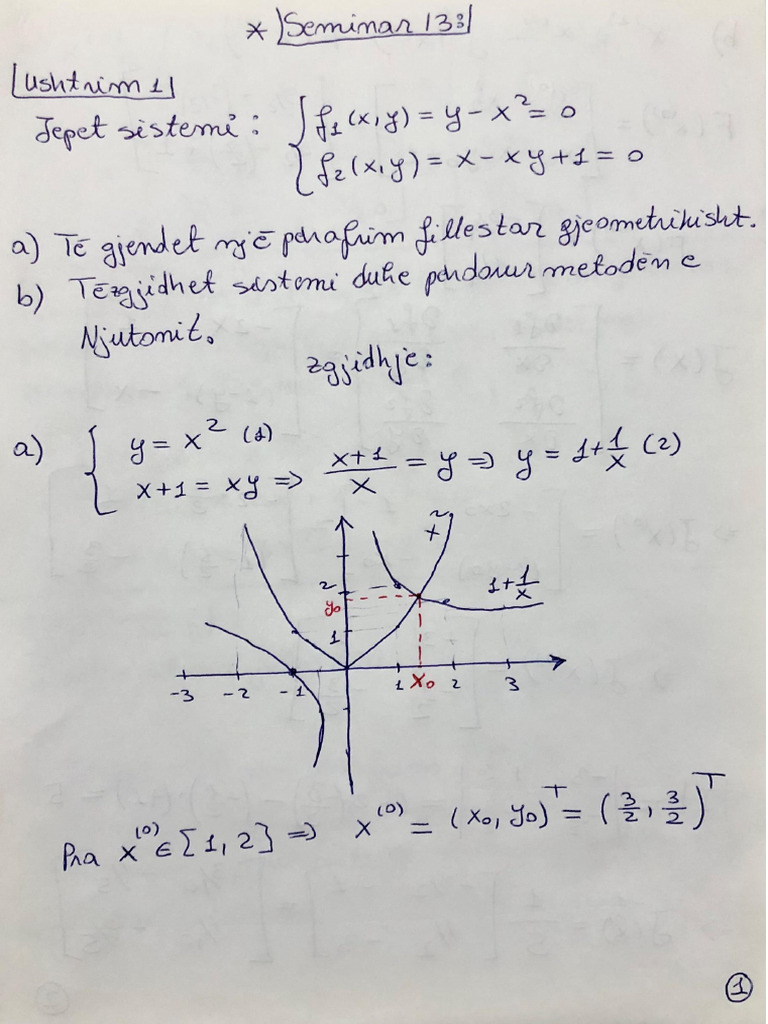 * Seminar 13
Ushtrim 1
Jepet sistemi: { f₁(x,y) = y - x² = 0
f₂(x,y) = x - xy + 1 = 0
a) Të gjendet një përafrim fillestar gjeometrikisht.
b) Të zgjidhet sistemi duke përdorur metodën e
Njutonit.
Zgjidhje:
a) { y = x² (1)
x+1 = xy => (x+1)/x = y => y = 1+1/x (2)
x²
2
1+1/x
y₀
1
-3 -2 -1 1 x₀ 2 3
Pra x⁽⁰⁾ ∈ [1,2] => x⁽⁰⁾ = (x₀, y₀)ᵀ = (3/2, 3/2)ᵀ
1